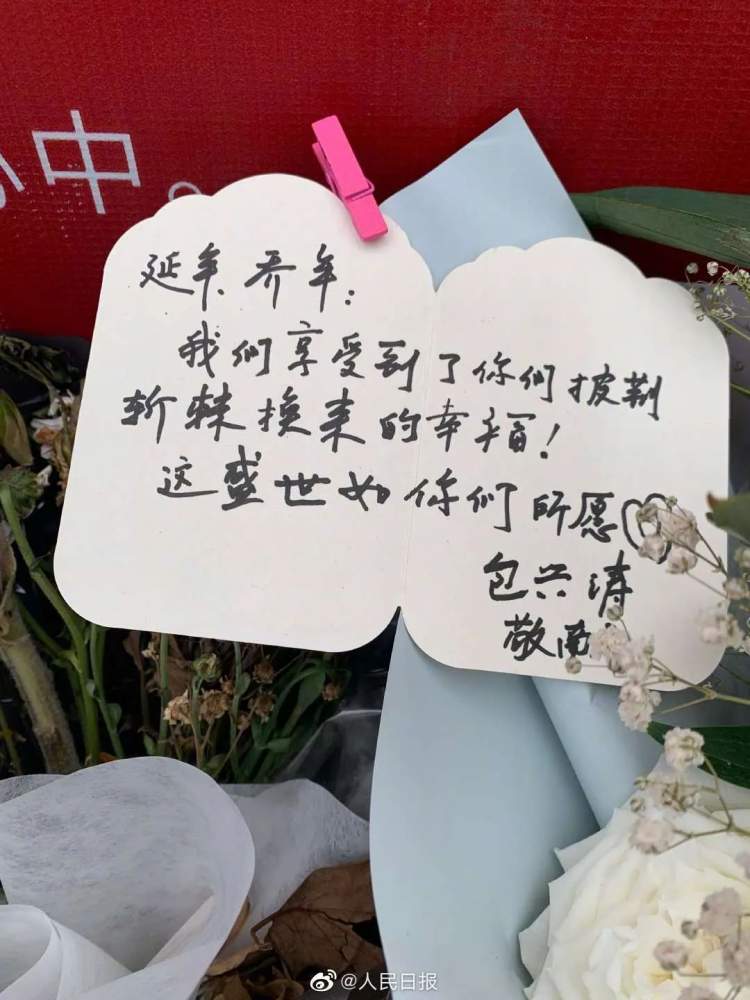 心中。
延年乔年：
我们享受到了你们披荆
斩棘换来的幸福！
这盛世如你们所愿♡
包兴涛
敬献
@人民日报